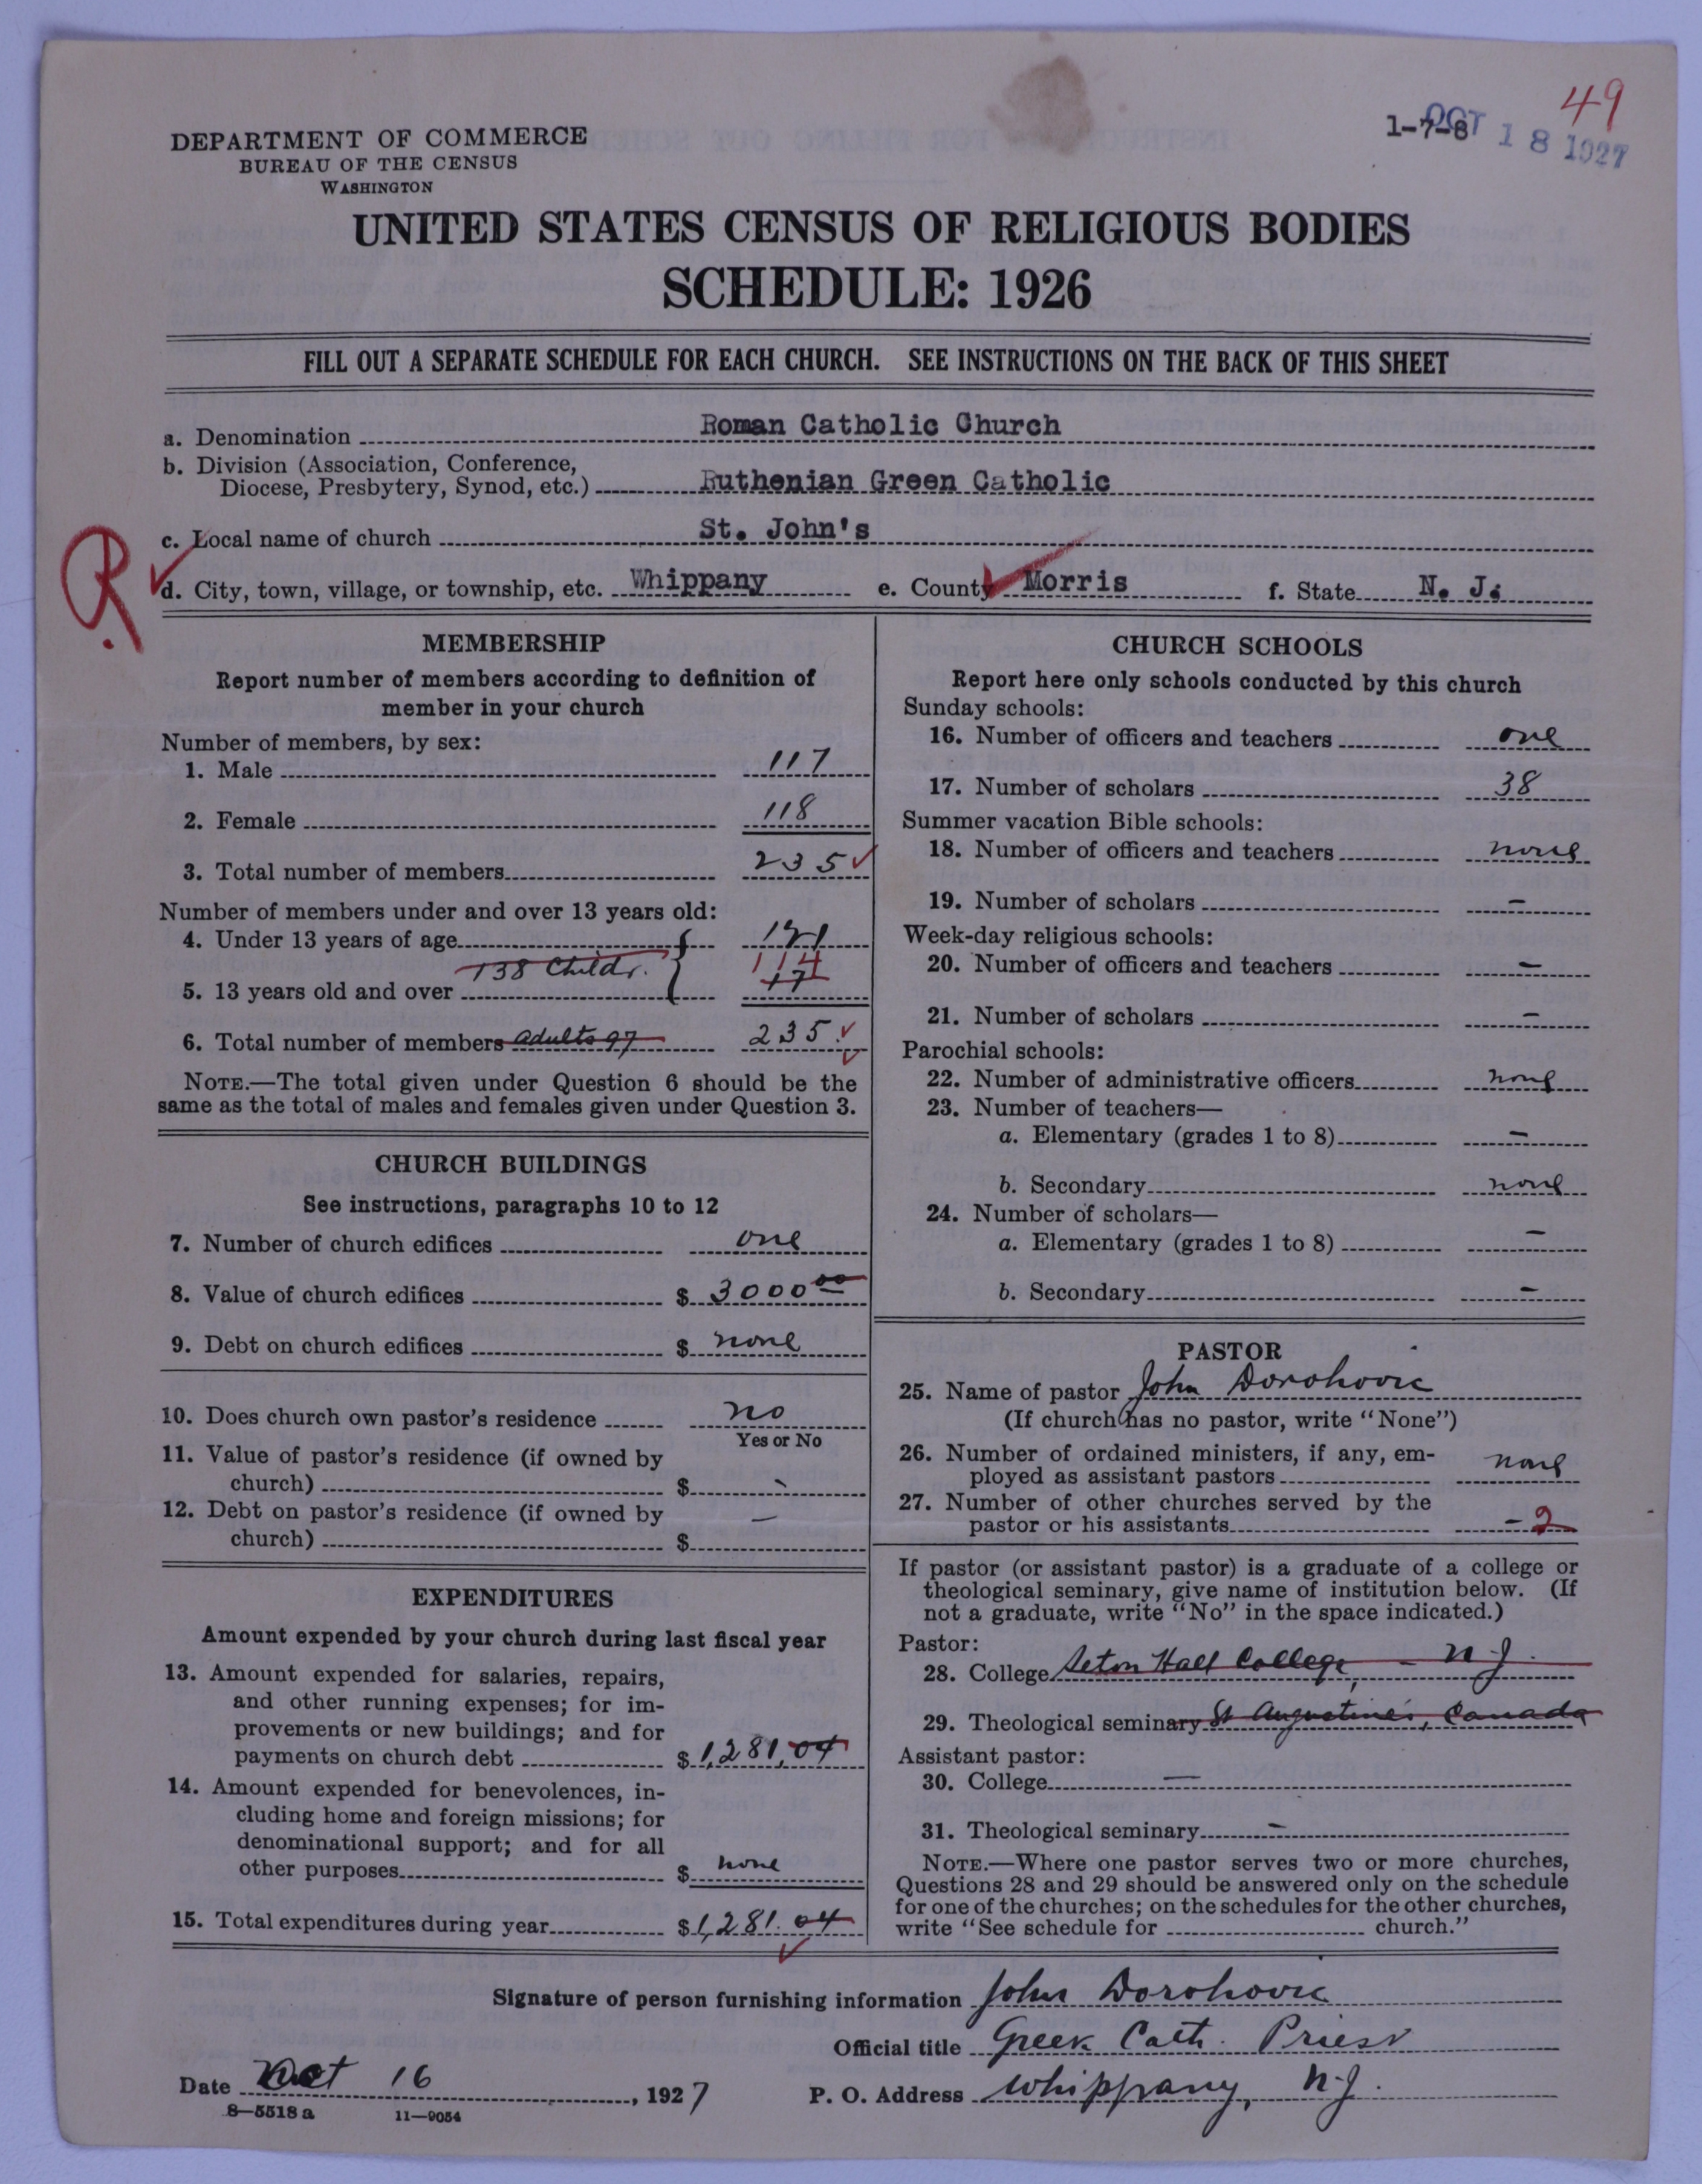 49
1-7-8
OCT 18 1927
DEPARTMENT OF COMMERCE
BUREAU OF THE CENSUS
WASHINGTON
UNITED STATES CENSUS OF RELIGIOUS BODIES
SCHEDULE: 1926
FILL OUT A SEPARATE SCHEDULE FOR EACH CHURCH. SEE INSTRUCTIONS ON THE BACK OF THIS SHEET
a. Denomination Roman Catholic Church
b. Division (Association, Conference,
Diocese, Presbytery, Synod, etc.) Ruthenian Green Catholic
c. Local name of church St. John's
R.
d. City, town, village, or township, etc. Whippany e. County Morris f. State N. J.
MEMBERSHIP
Report number of members according to definition of
member in your church
Number of members, by sex:
1. Male 117
2. Female 118
3. Total number of members 235
Number of members under and over 13 years old:
4. Under 13 years of age 121
138 Childr. 114
5. 13 years old and over 17
6. Total number of members adults 97 235
NOTE.—The total given under Question 6 should be the
same as the total of males and females given under Question 3.
CHURCH BUILDINGS
See instructions, paragraphs 10 to 12
7. Number of church edifices one
8. Value of church edifices $ 3000 00
9. Debt on church edifices $ none
10. Does church own pastor's residence no
Yes or No
11. Value of pastor's residence (if owned by
church) $ -
12. Debt on pastor's residence (if owned by
church) $ —
EXPENDITURES
Amount expended by your church during last fiscal year
13. Amount expended for salaries, repairs,
and other running expenses; for im-
provements or new buildings; and for
payments on church debt $ 1,281,04
14. Amount expended for benevolences, in-
cluding home and foreign missions; for
denominational support; and for all
other purposes $ none
15. Total expenditures during year $ 1,281.04
CHURCH SCHOOLS
Report here only schools conducted by this church
Sunday schools:
16. Number of officers and teachers one
17. Number of scholars 38
Summer vacation Bible schools:
18. Number of officers and teachers none
19. Number of scholars -
Week-day religious schools:
20. Number of officers and teachers -
21. Number of scholars -
Parochial schools:
22. Number of administrative officers none
23. Number of teachers—
a. Elementary (grades 1 to 8) -
b. Secondary none
24. Number of scholars—
a. Elementary (grades 1 to 8) -
b. Secondary -
PASTOR
25. Name of pastor John Dorohovic
(If church has no pastor, write "None")
26. Number of ordained ministers, if any, em-
ployed as assistant pastors none
27. Number of other churches served by the
pastor or his assistants - 2
If pastor (or assistant pastor) is a graduate of a college or
theological seminary, give name of institution below. (If
not a graduate, write "No" in the space indicated.)
Pastor:
28. College Seton Hall College, - N.J.
29. Theological seminary St Augustine's, Canada
Assistant pastor:
30. College —
31. Theological seminary -
NOTE.—Where one pastor serves two or more churches,
Questions 28 and 29 should be answered only on the schedule
for one of the churches; on the schedules for the other churches,
write "See schedule for church."
Signature of person furnishing information John Dorohovic
Official title Greek Cath. Priest
Date Oct 16, 1927 P. O. Address Whippany, N.J.
8—5518 a 11—9054